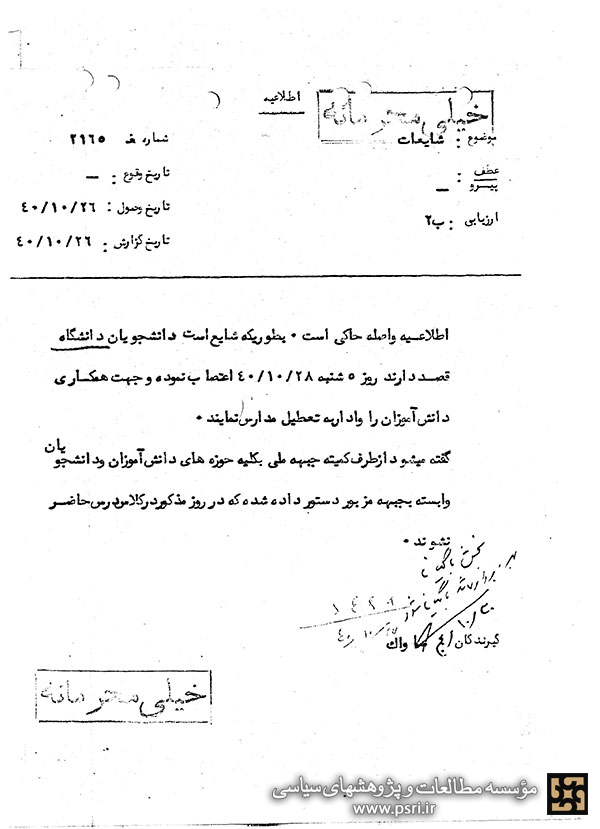 خیلی محرمانه
اطلاعیه
موضوع : شایعات
شماره ف ۲۱۶۵
عطف
پیرو : ــ
تاریخ وقوع : ــ
تاریخ وصول : ۴۰/۱۰/۲۶
ارزیابی : ب۲
تاریخ گزارش : ۴۰/۱۰/۲۶
اطلاعیه واصله حاکی است ۰ بطوریکه شایع است دانشجویان دانشگاه
قصد دارند روز ۵ شنبه ۴۰/۱۰/۲۸ اعتصاب نموده و جهت همکاری
دانش آموزان را وادار به تعطیل مدارس نمایند ۰
گفته میشود از طرف کمیته جبهه ملی بکلیه حوزه های دانش آموزان ودانشجویان
وابسته بجبهه مزبور دستور داده شده که در روز مذکور در کلاس درس حاضر
نشوند ۰
گیرندگان
واك
خیلی محرمانه
مؤسسه مطالعات و پژوهشهای سیاسی
www.psri.ir